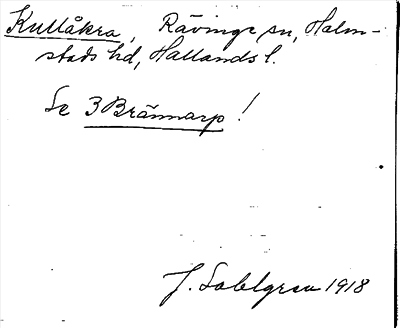 Kullåkra, Rävinge sn, Halm-
stads hd, Hallands l.
Se 3 Brännarp!
J. Sahlgren 1918